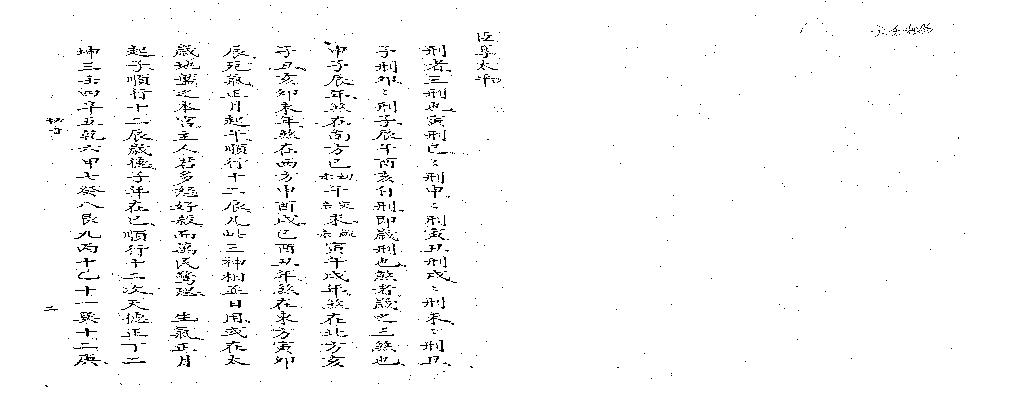 刑者三刑也寅刑巳〻刑申〻刑寅丑刑戌〻刑未〻刑丑
子刑卯〻刑子辰午酉亥自刑即歲刑也煞者歲之三煞也
申子辰年煞在南方巳午未寅午戌年煞在北方亥
子丑亥卯未年煞在西方申酉戌巳酉丑年煞在東方寅卯
辰死氣正月起午順行十二辰凡此三神相並日用或在太
歲地盤之本宮主人君多怒好殺而萬民驚恐 生氣正月
起子順行十二辰歲德子年在巳順行十二次天德正丁二
坤三壬四辛五乾六甲七癸八艮九丙十乙十一巽十二庚
二